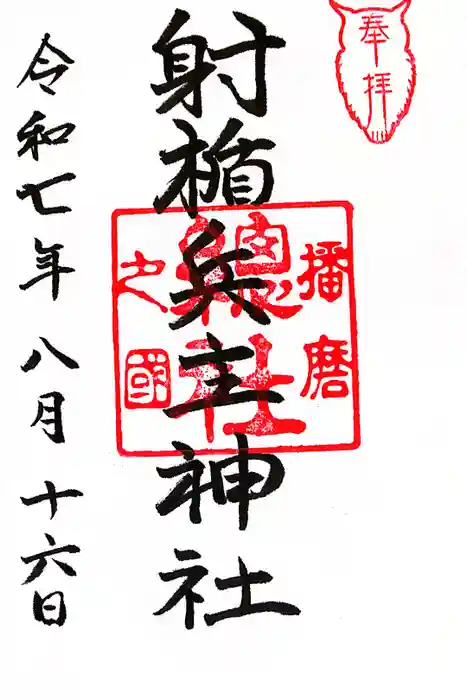 奉拝
射楯兵主神社
播磨
總社
之國
令和七年八月十六日